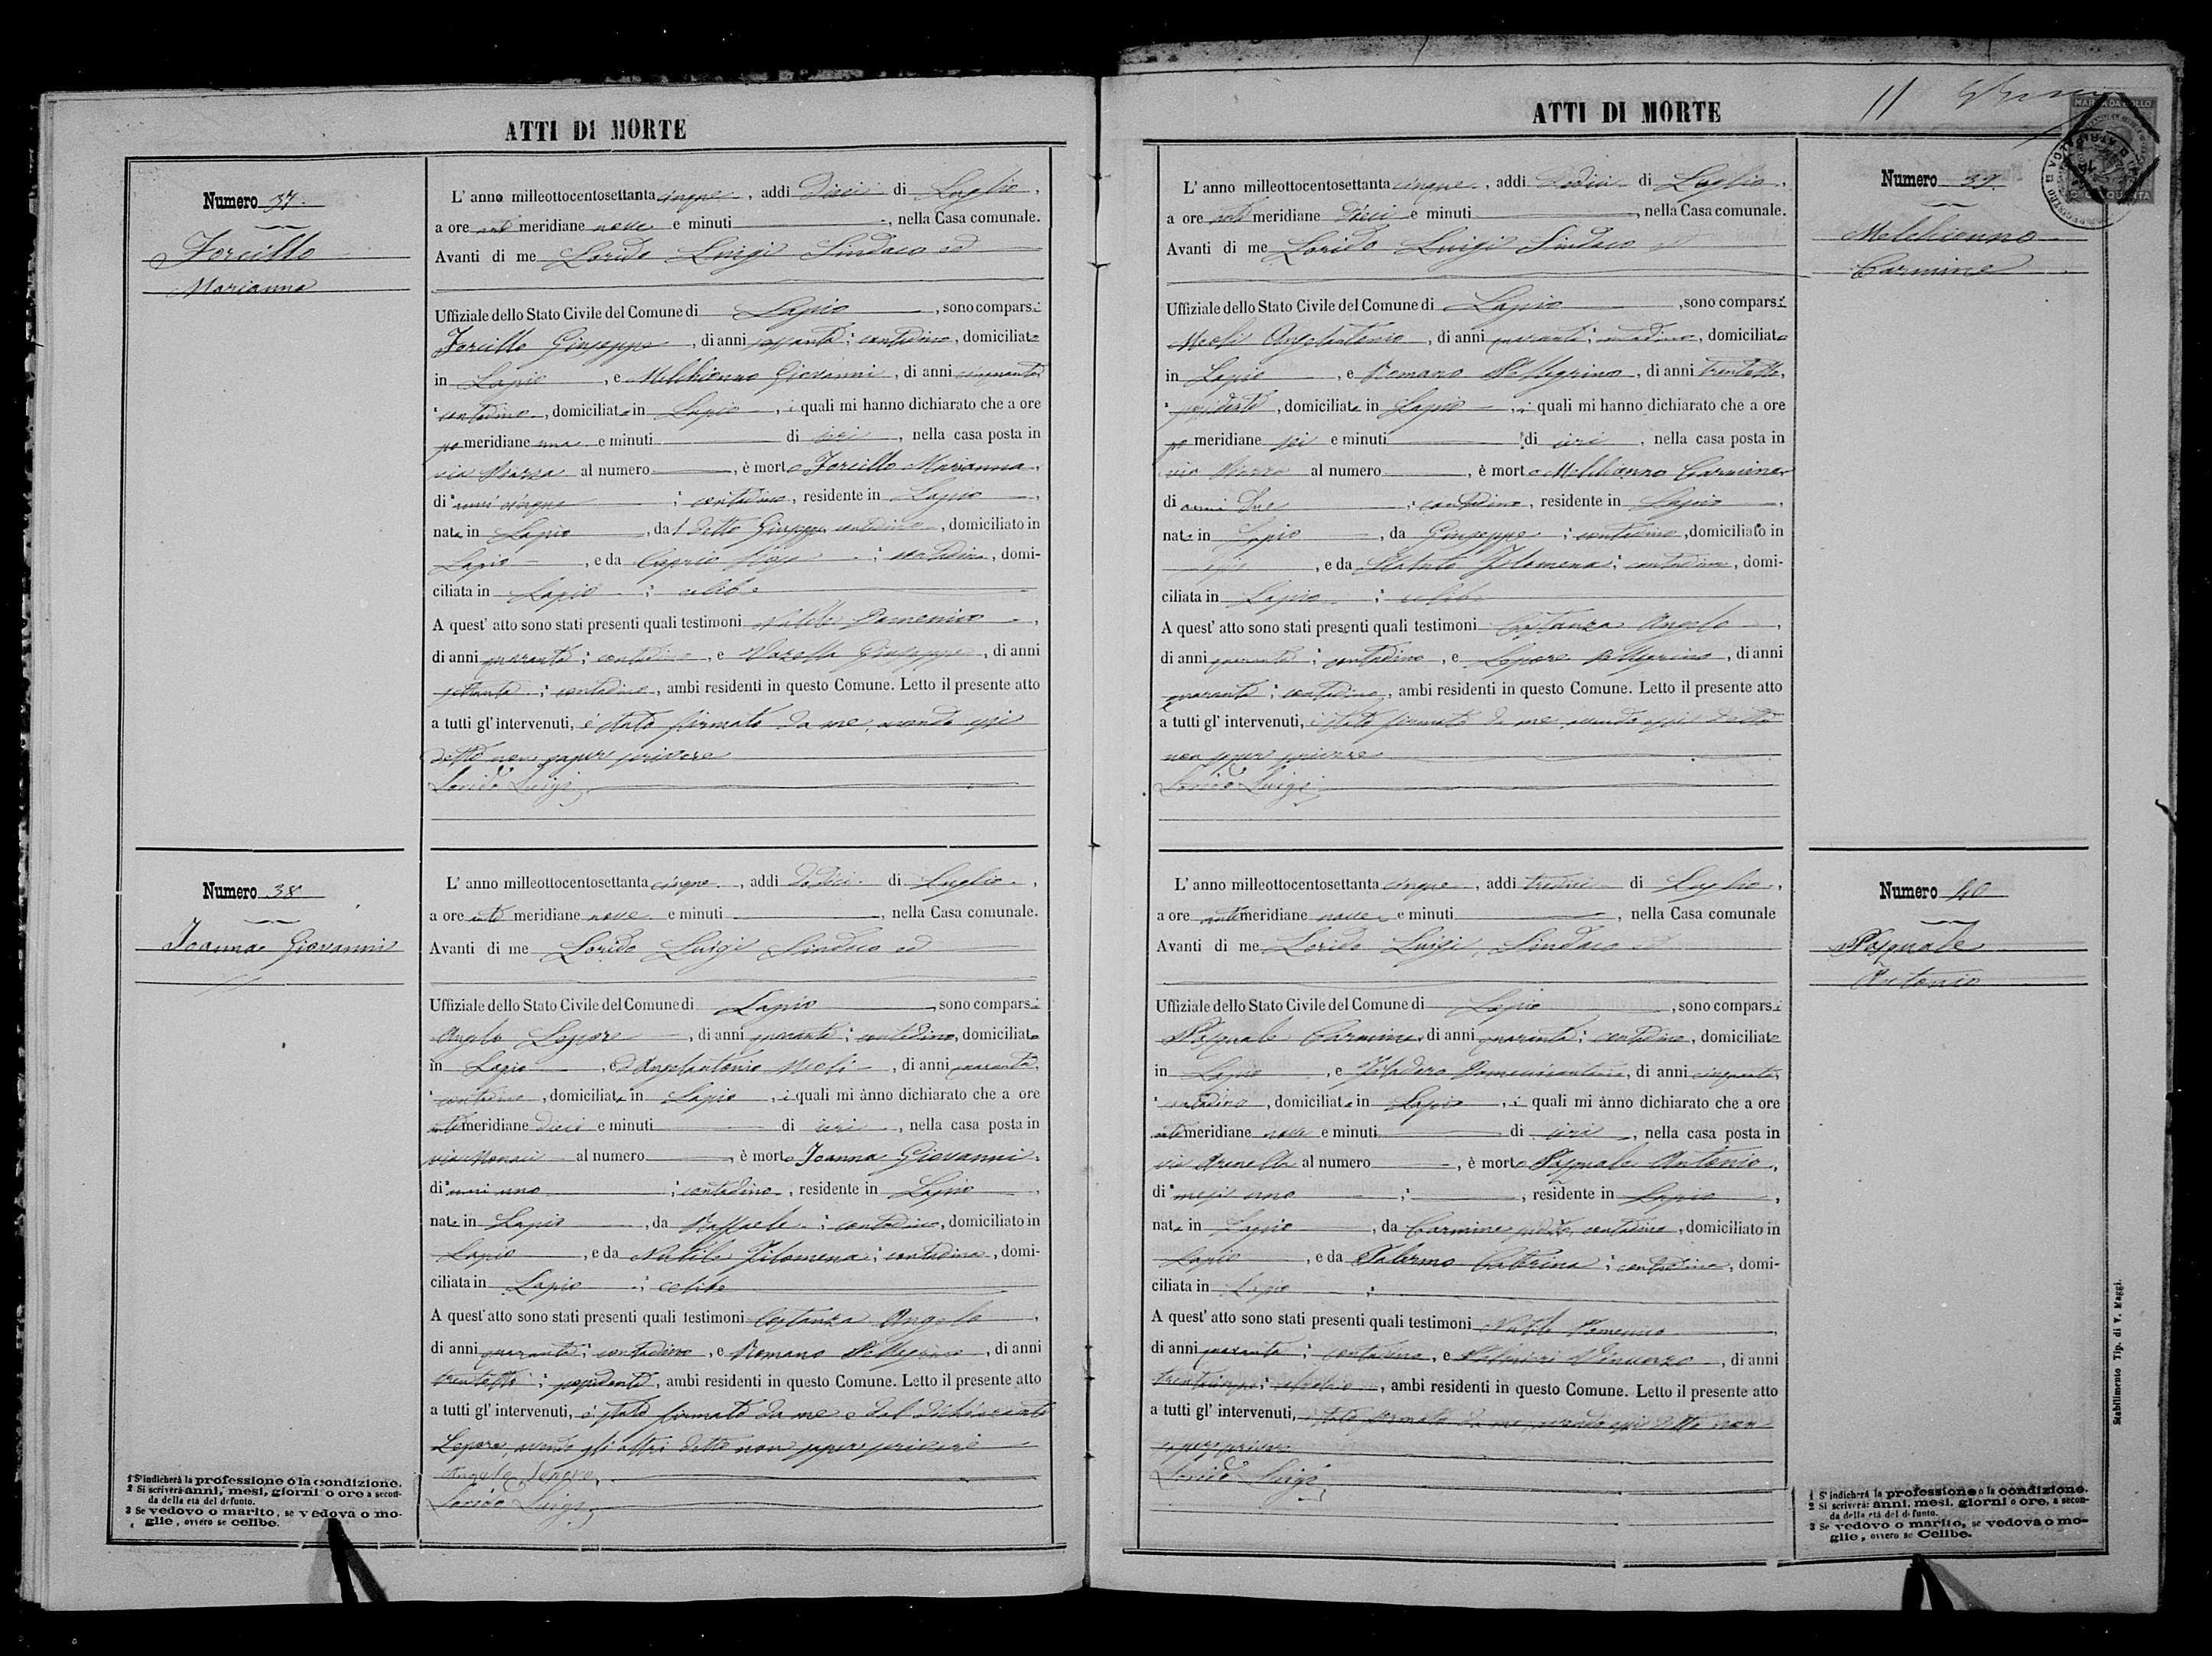 ATTI DI MORTE
Numero 37.
Forcillo
Marianna
L' anno milleottocentosettanta cinque, addi Dieci di Luglio,
a ore meridiane nove e minuti, nella Casa comunale.
Avanti di me Lorido Luigi Sindaco ed
Uffiziale dello Stato Civile del Comune di Lapio, sono comparsi
Forcillo Giuseppe, di anni sessanta; contadino, domiciliato
in Lapio, e Melchionno Giovanni, di anni cinquanta
contadino, domiciliato in Lapio, i quali mi hanno dichiarato che a ore
po meridiane una e minuti di ieri, nella casa posta in
via Piazza al numero, è morta Forcillo Marianna,
di anni cinque; contadina, residente in Lapio,
nata in Lapio, dal detto Giuseppe contadino, domiciliato in
Lapio, e da Caprio; contadina, domi-
ciliata in Lapio; celibe
A quest' atto sono stati presenti quali testimoni Natele Domenico,
di anni quaranta; contadino, e Giuseppe, di anni
settanta; contadino, ambi residenti in questo Comune. Letto il presente atto
a tutti gl' intervenuti, è stato firmato da me, avendo essi
detto non sapere scrivere
Lorido Luigi
Numero 38
Ioanna Giovanni
L' anno milleottocentosettanta cinque, addi dodici di Luglio,
a ore meridiane nove e minuti, nella Casa comunale.
Avanti di me Lorido Luigi Sindaco ed
Uffiziale dello Stato Civile del Comune di Lapio sono comparsi
Angelo Lepore, di anni quaranta; contadino, domiciliato
in Lapio, ed Angelantonio Meoli, di anni quaranta,
contadino, domiciliato in Lapio, i quali mi ànno dichiarato che a ore
antemeridiane dieci e minuti di ieri, nella casa posta in
via Monaci al numero, è morto Ioanna Giovanni,
di anni uno; contadino, residente in Lapio,
nato in Lapio, da Raffaele; contadino, domiciliato in
Lapio, e da Natele Filomena; contadina, domi-
ciliata in Lapio; celibe
A quest' atto sono stati presenti quali testimoni Costanza Angelo,
di anni quaranta; contadino, e Romano Pellegrino, di anni
trentotto; possidente, ambi residenti in questo Comune. Letto il presente atto
a tutti gl' intervenuti, è stato firmato da me e dal dichiarante
Lepore, avendo gli altri detto non sapere scrivere
Angelo Lepore
Lorido Luigi
1 S' indicherà la professione o la condizione.
2 Si scriverà anni, mesi, giorni o ore a secon-
da della età del defunto.
3 Se vedovo o marito, se vedova o mo-
glie, ovvero se celibe.
ATTI DI MORTE
11
MARCA DA BOLLO
Numero 39.
Melchionno
Carmine
L' anno milleottocentosettanta cinque, addi Dodici di Luglio,
a ore meridiane Dieci e minuti, nella Casa comunale.
Avanti di me Lorido Luigi Sindaco ed
Uffiziale dello Stato Civile del Comune di Lapio, sono comparsi
Meoli Angelantonio, di anni quaranta; contadino, domiciliato
in Lapio, e Romano Pellegrino, di anni trentotto,
possidente, domiciliato in Lapio, i quali mi hanno dichiarato che a ore
po meridiane sei e minuti di ieri, nella casa posta in
via al numero, è morto Melchionno Carmine
di anni due; contadino, residente in Lapio,
nato in Lapio, da Giuseppe; contadino, domiciliato in
Lapio, e da Filomena; contadina, domi-
ciliata in Lapio; celibe
A quest' atto sono stati presenti quali testimoni Costanza Angelo,
di anni quaranta; contadino, e Lepore Pellegrino, di anni
quaranta; contadino, ambi residenti in questo Comune. Letto il presente atto
a tutti gl' intervenuti, è stato firmato da me avendo essi detto
non sapere scrivere
Lorido Luigi
Numero 40
Pasquale
Antonio
L' anno milleottocentosettanta cinque, addi tredici di Luglio,
a ore antimeridiane nove e minuti, nella Casa comunale
Avanti di me Lorido Luigi, Sindaco ed
Uffiziale dello Stato Civile del Comune di Lapio, sono comparsi
Pasquale Carmine, di anni quaranta; contadino, domiciliato
in Lapio, e Domenicantonio, di anni cinquanta,
contadino, domiciliato in Lapio, i quali mi ànno dichiarato che a ore
antimeridiane nove e minuti di ieri, nella casa posta in
via Arenella al numero, è morto Pasquale Antonio,
di mesi uno; residente in Lapio,
nato in Lapio, da Carmine contadino, domiciliato in
Lapio, e da Palermo Caterina; contadina, domi-
ciliata in Lapio;
A quest' atto sono stati presenti quali testimoni Natele Domenico
di anni quaranta; contadino, e Palmieri Vincenzo, di anni
trentacinque;, ambi residenti in questo Comune. Letto il presente atto
a tutti gl' intervenuti, è stato firmato da me, avendo essi detto non
sapere scrivere
Lorido Luigi
1 S' indicherà la professione o la condizione.
2 Si scriverà: anni, mesi, giorni o ore, a secon-
da della età del defunto.
3 Se vedovo o marito, se vedova o mo-
glie, ovvero se Celibe.
Stabilimento Tip. di V. Maggi.